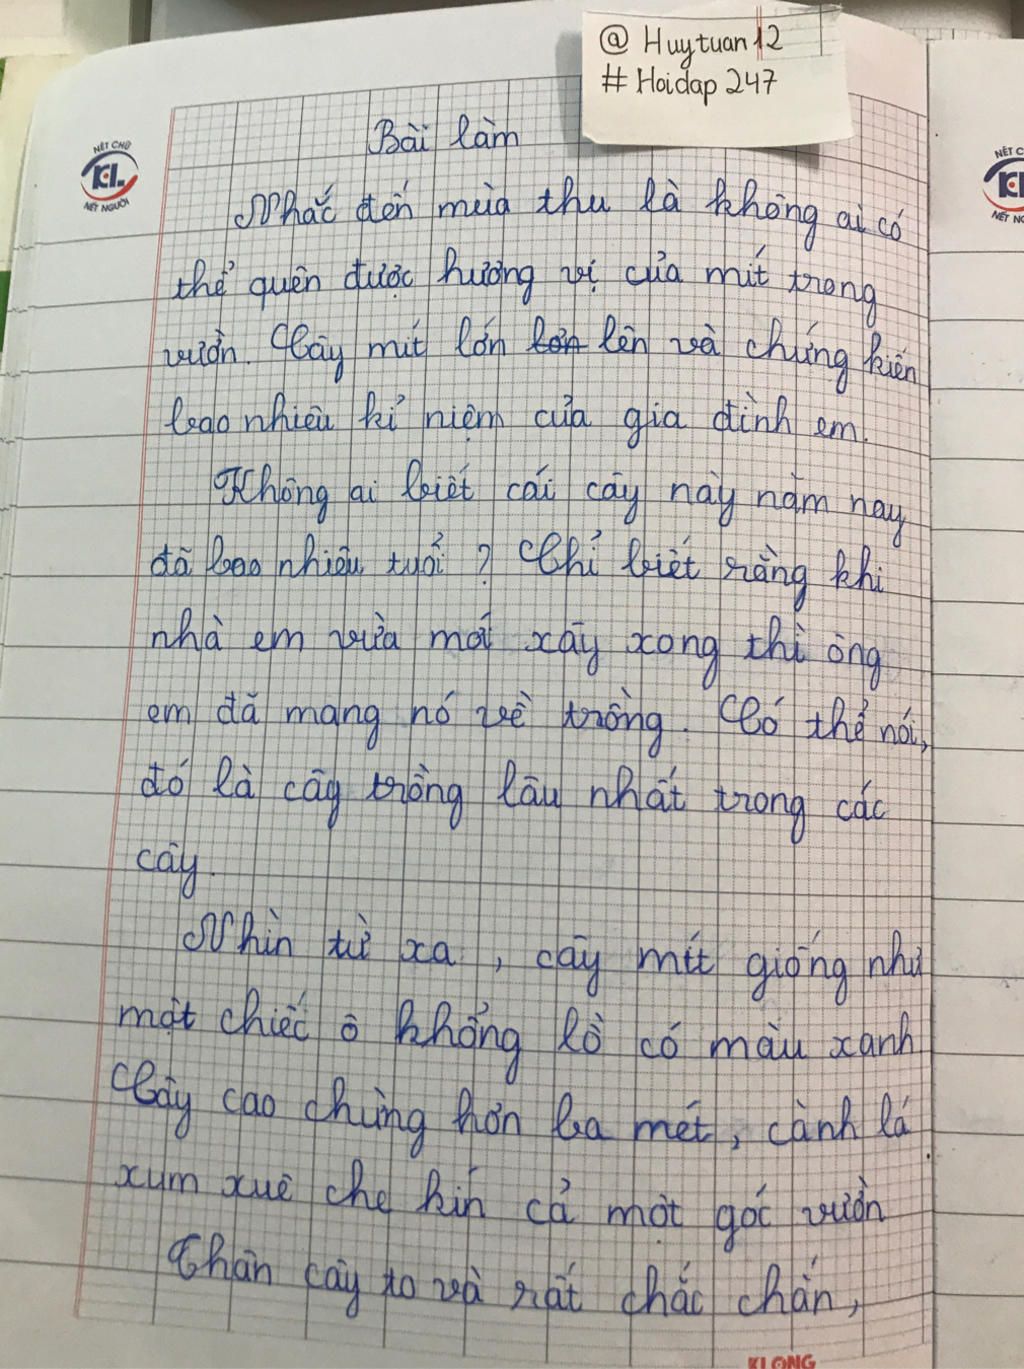 @ Huytuan12
# Hoidap 247
Bài làm
NÉT CHỮ
KL
NẾT NGƯỜI
Nhắc đến mùa thu là không ai có
thể quên được hương vị của mít trong
vườn. Cây mít lớn lớn lên và chứng kiến
bao nhiêu kỉ niệm của gia đình em.
Không ai biết cái cây này năm nay
đã bao nhiêu tuổi ? Chỉ biết rằng khi
nhà em vừa mới xây xong thì ông
em đã mang nó về trồng. Có thể nói,
đó là cây trồng lâu nhất trong các
cây.
Nhìn từ xa, cây mít giống như
một chiếc ô khổng lồ có màu xanh
Cây cao chừng hơn ba mét, cành lá
xum xuê che kín cả một góc vườn
Thân cây to và rất chắc chắn,
KLONG